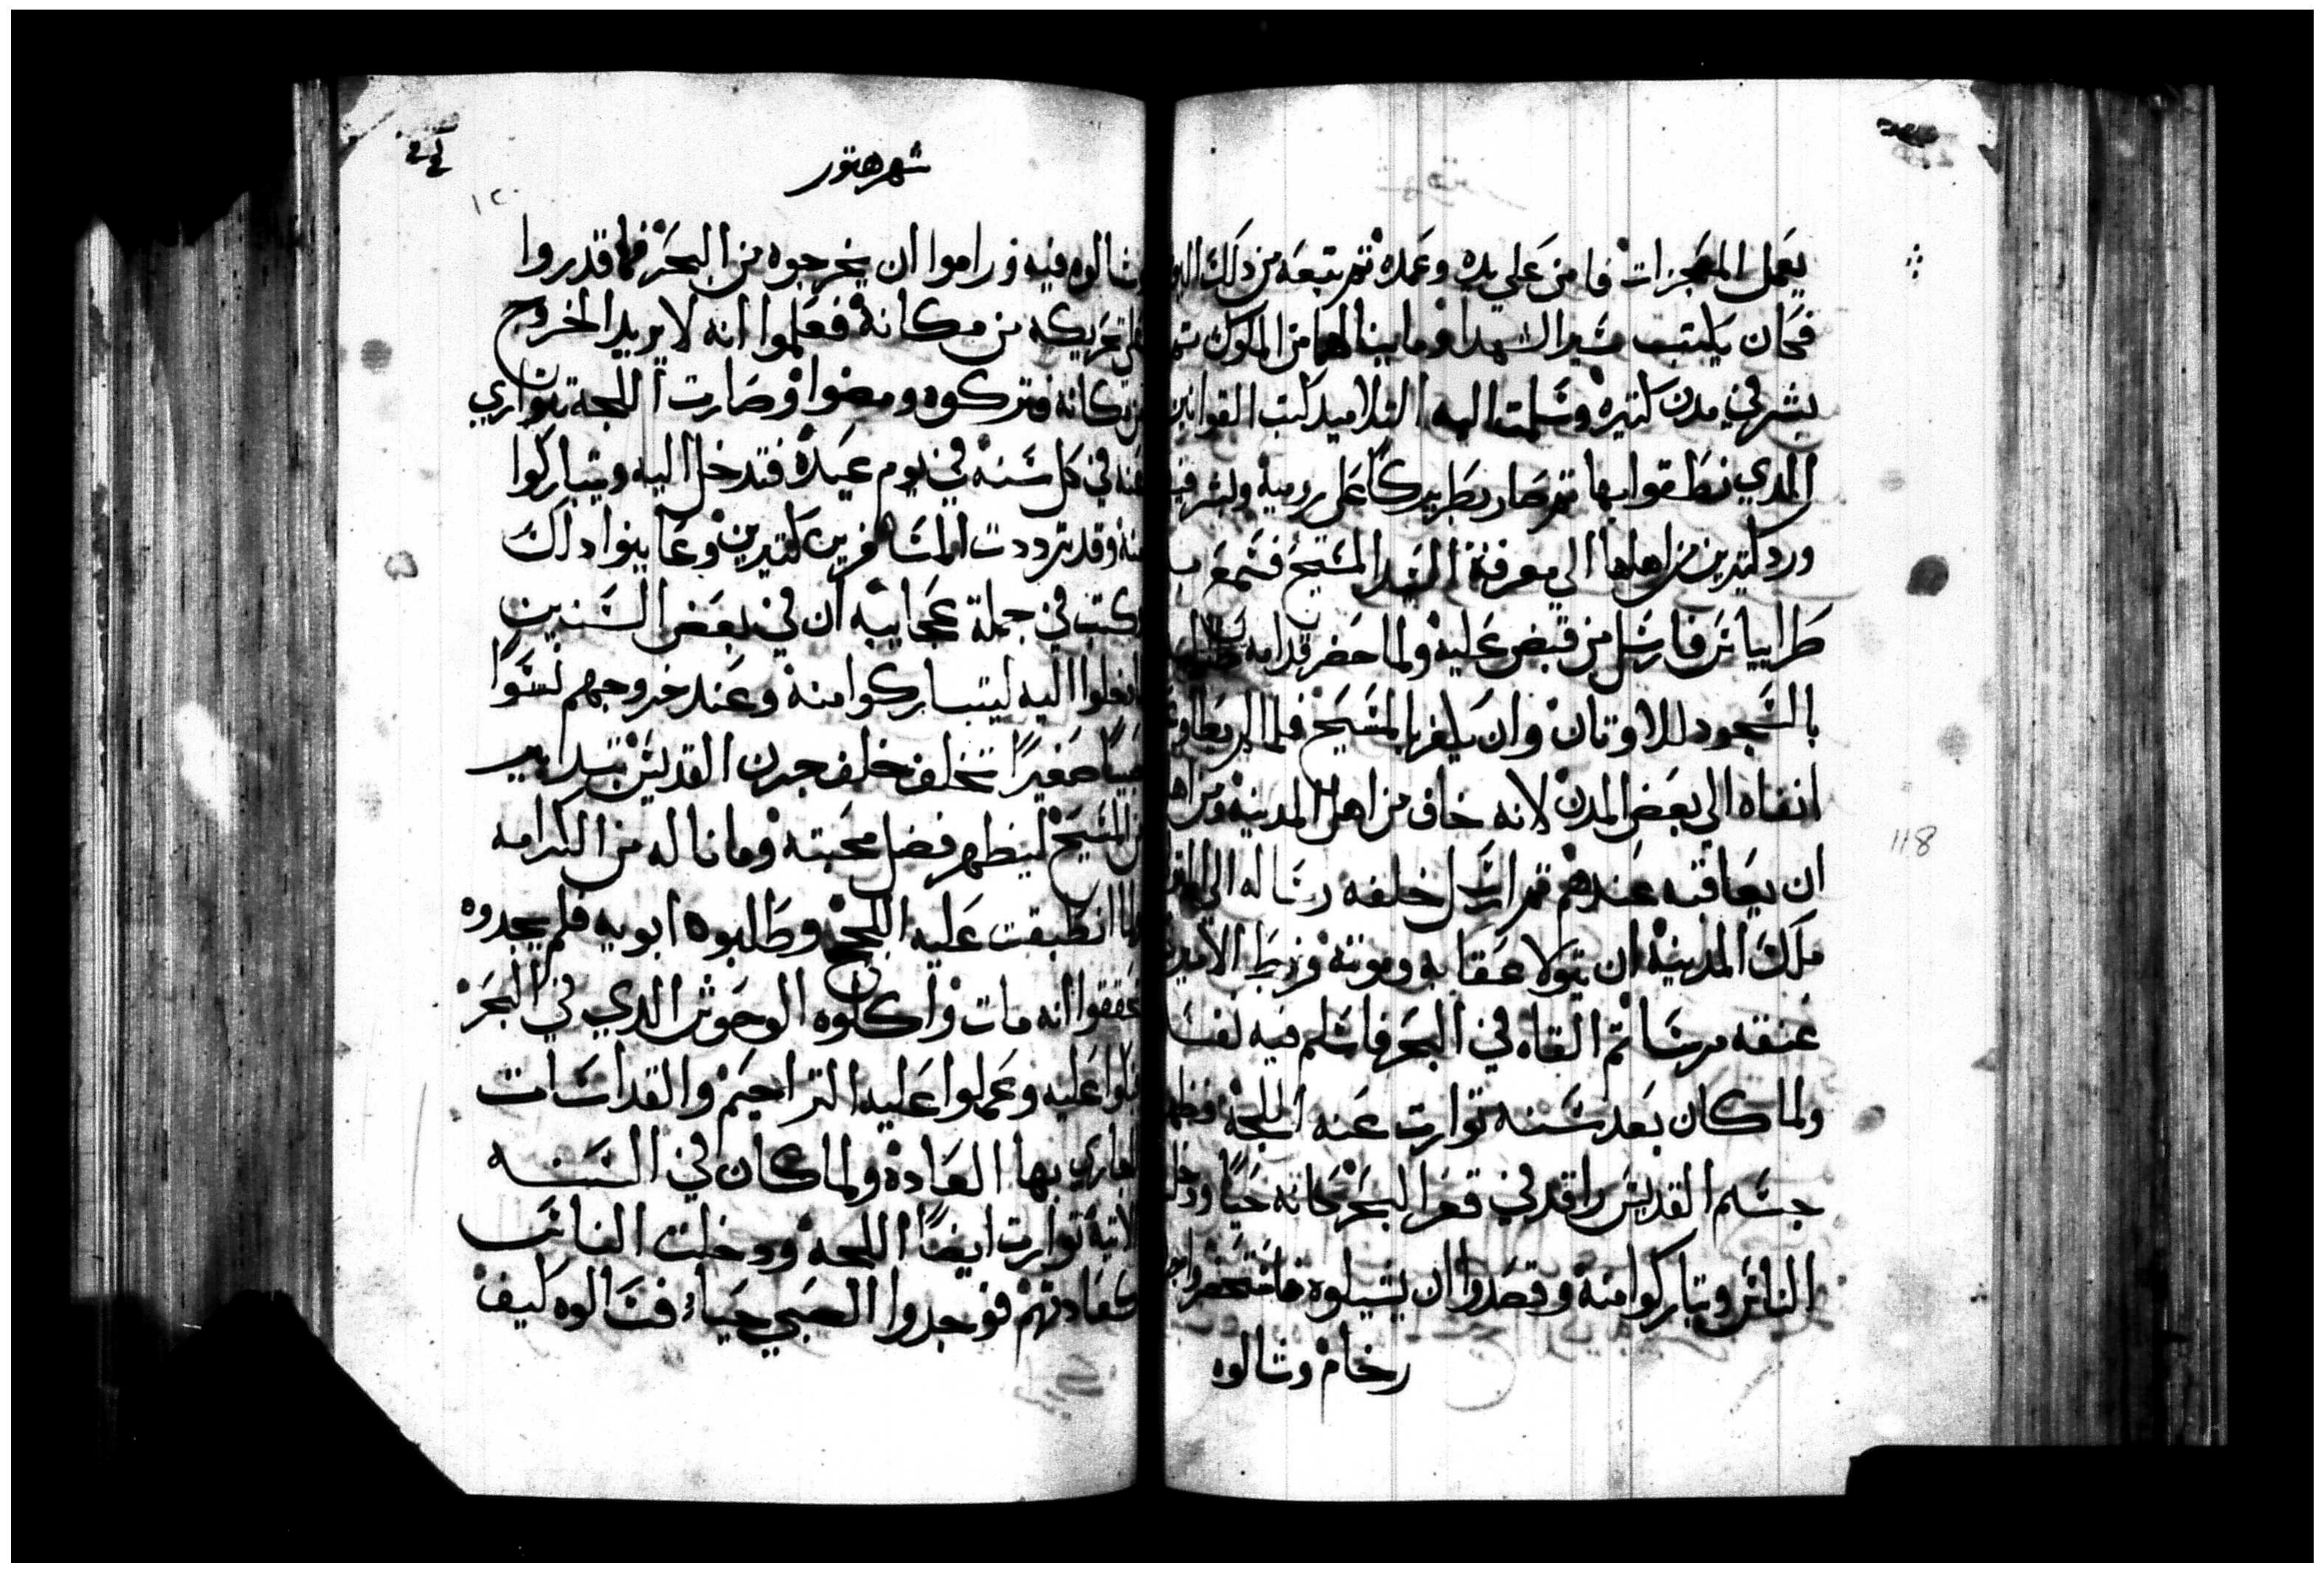 يعمل المعجزات فامن علي يده وعمده ثم تبعه من ذلك اليو
فكان يكتب سير الشهدا وما ينالهم من الملوك ثم
بشر في مدن كتيره وسلمت اليه التلاميد كتب القوانين
الدي نطقوا بها ثم صار بطريركا علي رومية وبشر فيها
ورد كتيرين من اهلها الي معرفة السيد المسيح فسمع به
طرابيانس فارسل من قبض عليه ولما حضر قدامه
بالسجود للاوتان وان يكفر بالمسيح فلما لم يطاوعه
انفاه الي بعض المدن لانه خاف من اهل المدينة ومن اهله
ان يعاقبه عندهم ثم ارسل خلفه رساله الي
ملك المدينة ان يتولا عقابه وموته فربط الامير
عنقه مرسا ثم القاه في البحر فاسلم فيه نفسا
ولما كان بعد سنه توارت عنه اللجة فظهر
جسم القديس راقد في قعر البحر كانه حيا ودخل
الناس وتباركوا منه وقصدوا ان يشيلوه فاستحضروا جرن
رخام وشالوه
شهر هتور
١٢٠
وشالوه فيه وراموا ان يخرجوه من البحر فما قدروا
علي تحريكه من مكانه فعلموا انه لا يريد الخروج
من مكانه فتركوه ومضوا وصارت اللجة تتواري
عنه في كل سنه في يوم عيده فتدخل اليه ويتباركوا
منه وقد ترددت المسافرين كتيرين وعاينوا داك
وكتب في جملة عجايبه ان في بعض السنين
دخلوا اليه ليتباركوا منه وعند خروجهم نسوا
صبيا صغيرا تخلف خلف جرن القديس بتدابير
من المسيح ليظهر فضل محبته وما ناله من الكرامه
لما انطبقت عليه اللجة وطلبوه ابويه فلم يجدوه
تحققوا انه مات واكلوه الوحوش الدي في البحر
بكوا عليه وعملوا عليه التراحيم والقداسات
الجاري بها العاده ولما كان في السنه
الاتية توارت ايضا اللجة ودخلت الناس
كعادتهم فوجدوا الصبي حيا فسالوه كيف
118